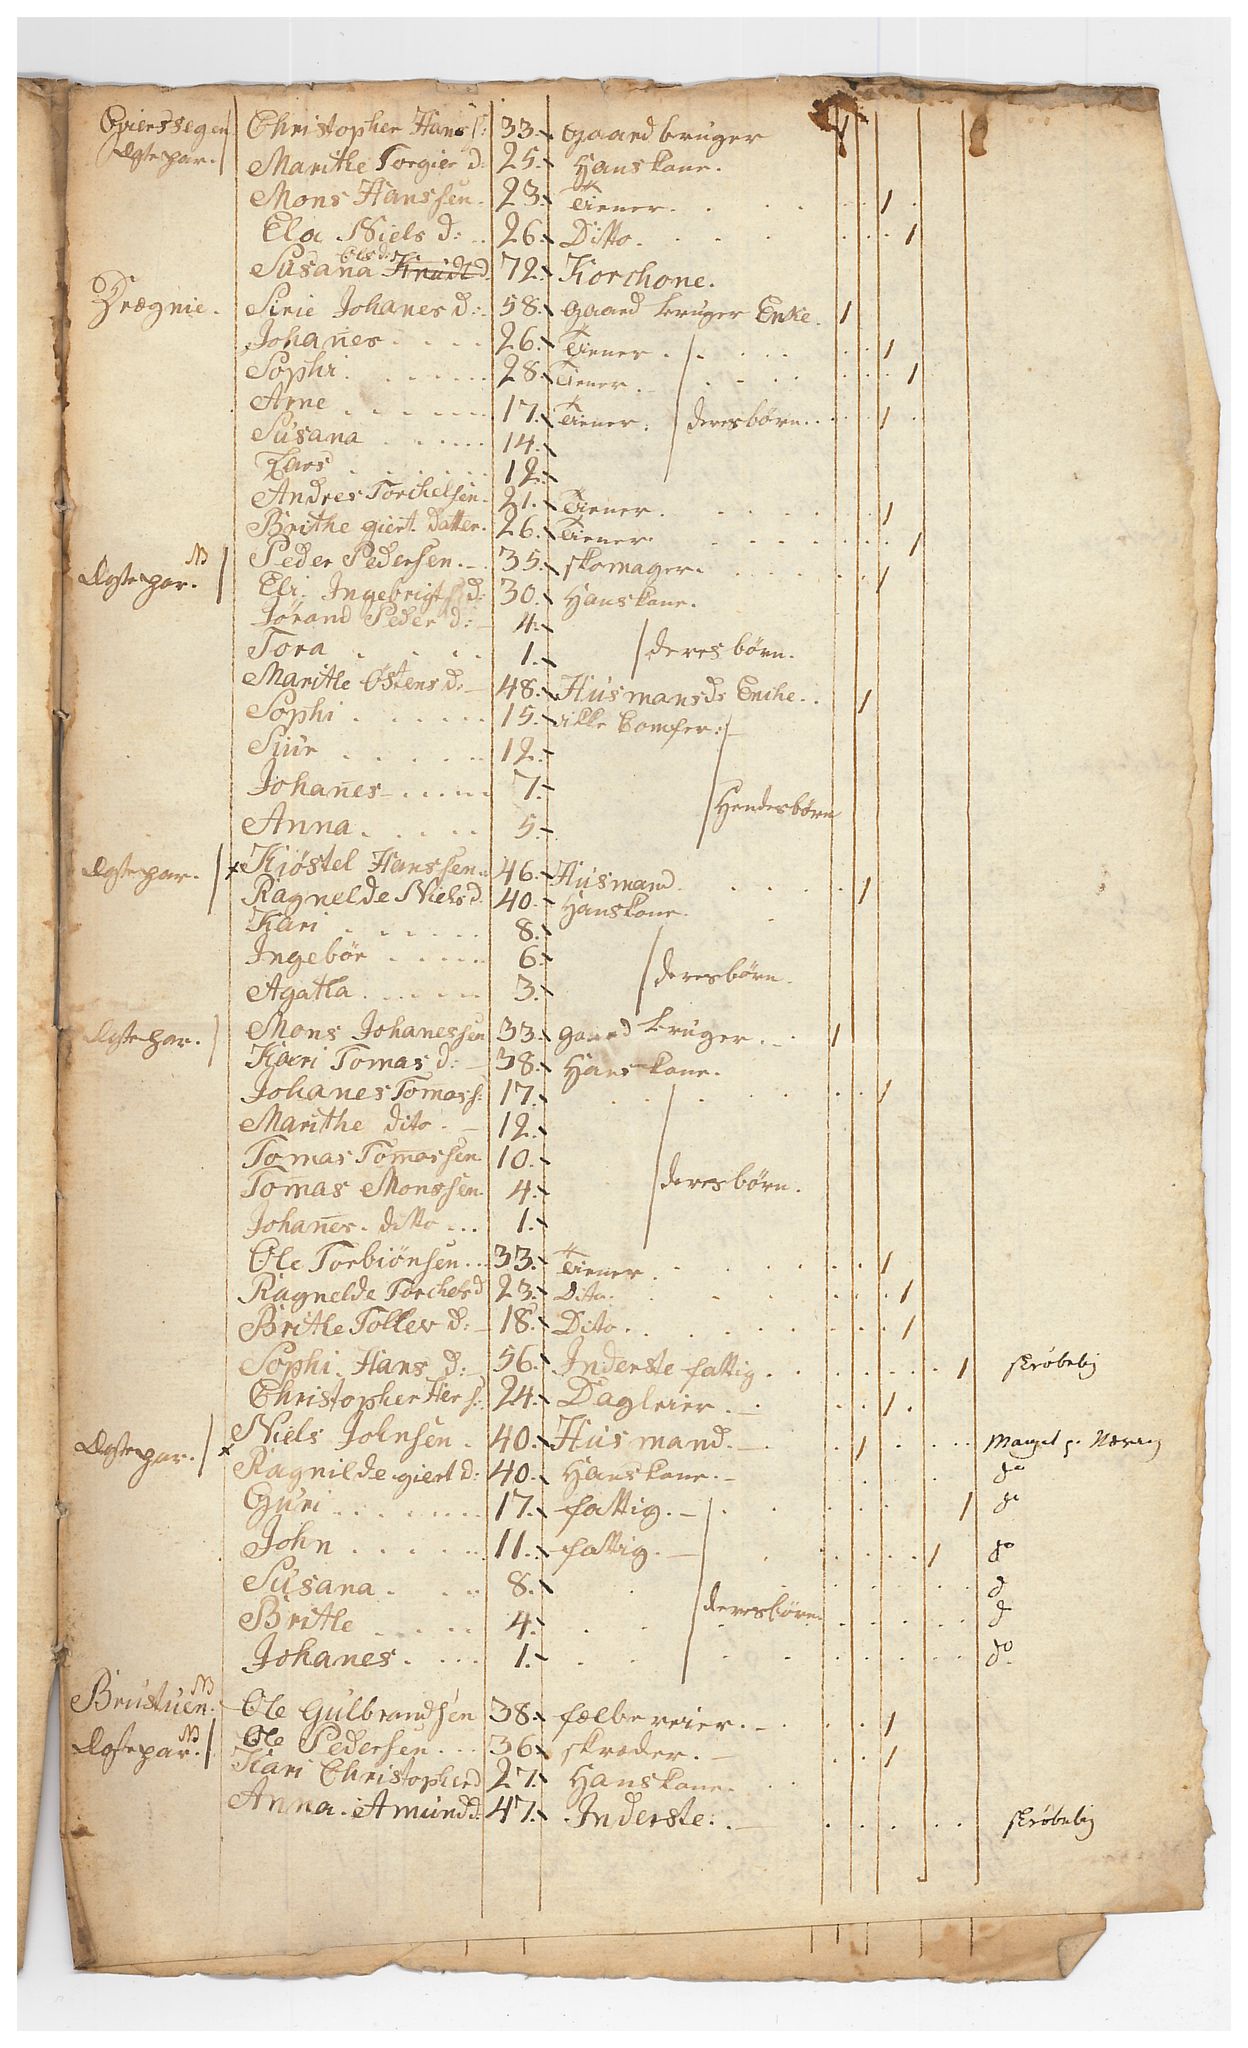 Christopher Hans s: 33. Gaard bruger
Ægte par. Marithe Torgier d: 25. Hans kone.
Mons Hanssen. 23. Tiener.
Ela Niels d: 26. Ditto.
Susana Ols d: Knudt d. 72. Korchone.
Drægnie. Sirie Johanes d: 58. gaard bruger Enke.
Johanes 26. Tiener.
Sophi. 28. Tiener.
Arne 17. Tiener. deres børn.
Susana 14.
Lars 12.
Andres Torchelsen. 21. Tiener.
Brithe giert. datter. 26. Tiener.
NB Peder Pedersen. 35. skomager.
Ægte par. Eli. Ingebrigt d: 30. Hans kone.
Jørand Peder d: 4.
Tora 1. deres børn.
Marithe Østens d: 48. Husmands Enche.
Sophi 15. ikke Comfer:
Siur 12.
Johanes 7. Hendes børn
Anna 5.
Ægte par. x Kiøstel Hanssen 46. Husmand.
Ragnelde Niels d. 40. Hans kone.
Kari 8.
Ingebør 6.
Agatha 3. deres børn.
Ægte par. Mons Johanessen 33. gaard bruger.
Kari Tomas d: 38. Hans kone.
Johanes Tomas s: 17.
Marithe dito. 12.
Tomas Tomassen 10.
Tomas Monssen. 4. deres børn.
Johanes. ditto 1.
Ole Torbiønsen 33. Tiener.
Ragnelde Torchels d 23. Ditto.
Brithe Tollev d: 18. Dito.
Sophi. Hans d: 56. Inderste fattig. skrøbelig
Christopher Her s: 24. Dagleier.
Ægte par. x Niels Johnsen. 40. Husmand. Manget p: Næring
Ragnilde giert d: 40. Hans kone. do
Guri 17. fattig. do
John 11. fattig. do
Susana. 8. d
Brithe 4. deres børn. d
Johanes. 1. do
NB
Brustuen. Ole Gulbrandsen 38. fælbereier.
NB
Ægte par. Ole Pedersen. 36 skræder.
Kari Christopher d 27. Hans kone.
Anna. Amund d: 47. Inderste. skrøbelig